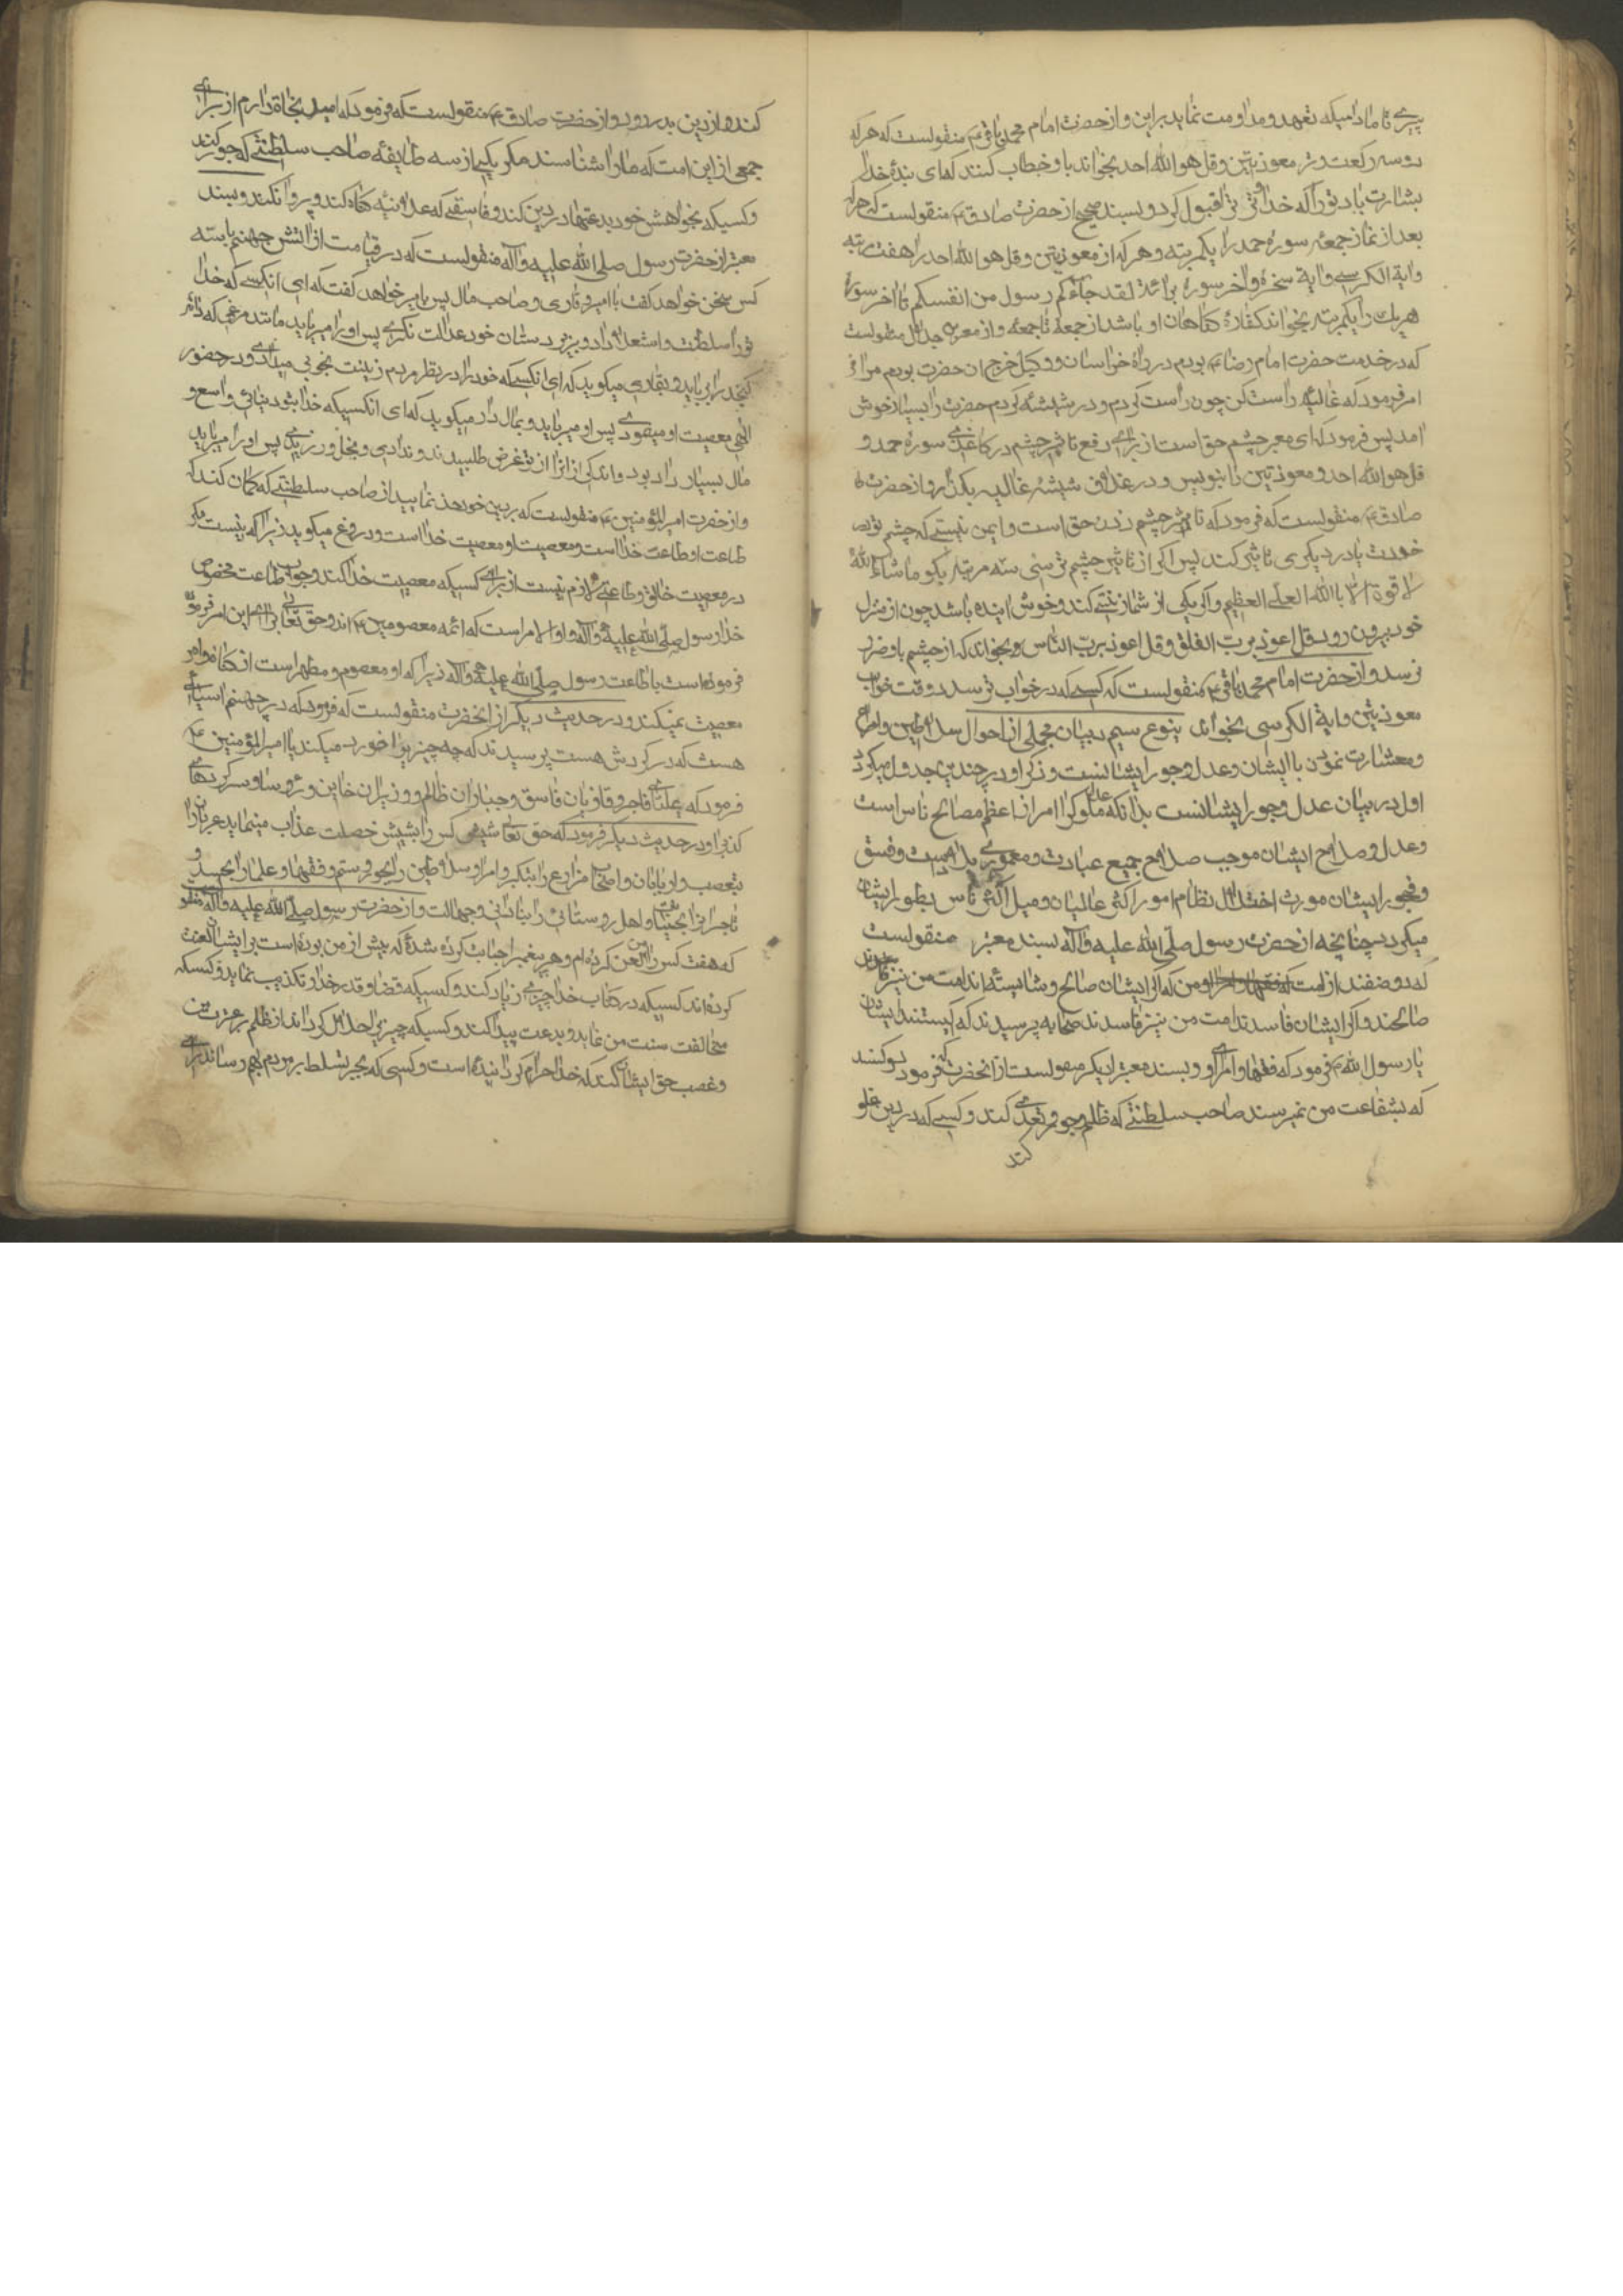 پیری تا مادامیکه تعهد و مداومت نماید براین و از حضرت امام محمد باقر ع منقولست که هر که
دو سه رکعت وتر معوذتین و قل هو الله احد بخواند باو خطاب کنند که ای بندهٔ خدا
بشارت باد تو را که خدا وتر ترا قبول کرد و بسند صحیح از حضرت صادق ع منقولست که هر که
بعد از نماز جمعه سورهٔ حمد را یکمرتبه و هر که از معوذتین و قل هو الله احد را هفت مرتبه
و ایة الکرسی و ایة سخره و اخر سورهٔ برائة لقد جاءکم رسول من انفسکم تا اخر سوره
هر یك را یکمرتبه بخواند کفارهٔ کناهان او باشد از جمعه تا جمعه و از معمر بن خلاد منقولست
که در خدمت حضرت امام رضا ع بودم در راه خراسان و وکیل خرج ان حضرت بودم مرا
امر فرمود که غالیه راست کن چون راست کردم و در شیشه کردم حضرت را بسیار خوش
امد پس فرمود که ای معمر چشم حق است از برای رفع تاثیر چشم در کاغذی سوره حمد و
قل هو الله احد و معوذتین را بنویس و در غلاف شیشهٔ غالیه بکذار و از حضرت
صادق ع منقولست که فرمود که تاثیر چشم زدن حق است و ایمن نیستی که چشم تو در
خودت یا در دیکری تاثیر کند پس اکر از تاثیر چشم ترسی سه مرتبه بکو ماشاء الله
لا قوة الا بالله العلی العظیم و اکر یکی از شما زینتی کند و خوش اینده باشد چون از منزل
خود بیرون رود قل اعوذ برب الفلق و قل اعوذ برب الناس بخواند که از چشم باو ضرر
نرسد و از حضرت امام محمد باقر ع منقولست که کسی که در خواب ترسد در وقت خواب
معوذتین و ایة الکرسی بخواند ینبوع سیم در بیان مجملی از احوال سلاطین و امرا
و معشارت نمودن با ایشان و عدل و جور ایشانست و ذکر او در چندین جدول میکردد
اول در بیان عدل و جور ایشانست بدانکه عدل ملوک و امرا از اعظم مصالح ناس است
و عدل و صلاح ایشان موجب صلاح جمیع عباد و معموری بلاد است و فسق
و فجور ایشان مورث اختلال نظام امور اکثر عالمیان و میل اکثر ناس بطور ایشان
میکردد چنانچه از حضرت رسول صلی الله علیه و آله بسند معتبر منقولست
که دو صنفند از امت من که اکر ایشان صالح و شایسته اند امت من نیز
صالحند و اکر ایشان فاسدند امت من نیز فاسدند صحابه پرسیدند که کیستند ایشان
یا رسول الله ص فرمود که فقها و امرا و بسند معتبر دیکر منقولست از انحضرت که فرمود دو کسند
که بشفاعت من نمیرسند صاحب سلطنتی که ظلم و جور و تعدی کند و کسی که در دین غلو
کند
کند و از دین بدر رود و از حضرت صادق ع منقولست که فرمود که امید نجاة دارم از برای
جمعی از این امت که ما را شناسند مکر یکی از سه طایفه صاحب سلطنتی که جور کند
و کسیکه بخواهش خود بدعتها در دین کند و فاسقی که علانیه کناه کند و پروا نکند و بسند
معتبر از حضرت رسول صلی الله علیه و آله منقولست که در قیامت از اتش جهنم با سه
کس سخن خواهد کفت با امیر و قاری و صاحب مال پس بامیر خواهد کفت که ای انکسی که خدا
تو را سلطنت و استعلا داد و بر زیر دستان خود عدالت نکردی پس او را میرباید مانند مرغی که دانهٔ
کنجد را برباید و بقاری میکوید که ای انکسی که خود را در نظر مردم زینت بخوبی میدادی و در حضور
الهی معصیت او مینمودی پس او میرباید و بمال دار میکوید که ای انکسیکه خدا بتو دنیای واسع و
مال بسیار داده بود و اندکی از انرا از تو قرض طلبیدند و ندادی و بخل ورزیدی پس او را میرباید
و از حضرت امیر المؤمنین ع منقولست که بر دین خود حذر نمایید از صاحب سلطنتی که کمان کند که
طاعت او طاعت خدا است و معصیت او معصیت خدا است و دروغ میکوید زیرا که نیست مکر
در معصیت خالق و طاعتی لازم نیست از برای کسیکه معصیت خدا کند وجوب طاعت مخصوص
خدا و رسول صلی الله علیه و آله و اولو الامر است که ائمه معصومین ع اند و حق تعالی امر فرموده
فرموده است باطاعت رسول صلی الله علیه و آله زیرا که او معصوم و مطهر است از کناه و امر
معصیت نمیکند و در حدیث دیکر از انحضرت منقولست که فرمود که در جهنم اسیائی
هست که در کردش هست پرسیدند که چه چیز را خورد میکند یا امیر المؤمنین ع
فرمود که علمای فاجر و قاریان فاسق و جباران ظالم و وزیران خاین و رؤسا و سرکردهای
کذبرا و در حدیث دیکر فرمود که حق تعالی شش کس را بشش خصلت عذاب مینماید عربان را
بتعصب و اربابان و اصحاب مزارع را بتکبر و امرا و سلاطین را بجور و ستم و فقها و علما را بحسد و
تاجران را بخیانت و اهل روستائی را بنادانی و جهالت و از حضرت رسول صلی الله علیه و آله منقول
که هفت کس را من لعن کرده ام و هر پیغمبر اجابت کرده شدهٔ که پیش از من بوده است بر ایشان لعنت
کرده اند کسیکه در کتاب خدا چیزی زیاد کند و کسیکه قضا و قدر خدا را تکذیب نماید و کسیکه
مخالفت سنت من نماید و بدعت پیدا کند و کسیکه چیزی را حلال کرداند از ظلم بر عترت من
و غصب حق ایشان کند که خدا حرام کردانیده است و کسی که بجبر تسلط بر مردم بهم رساند از برای